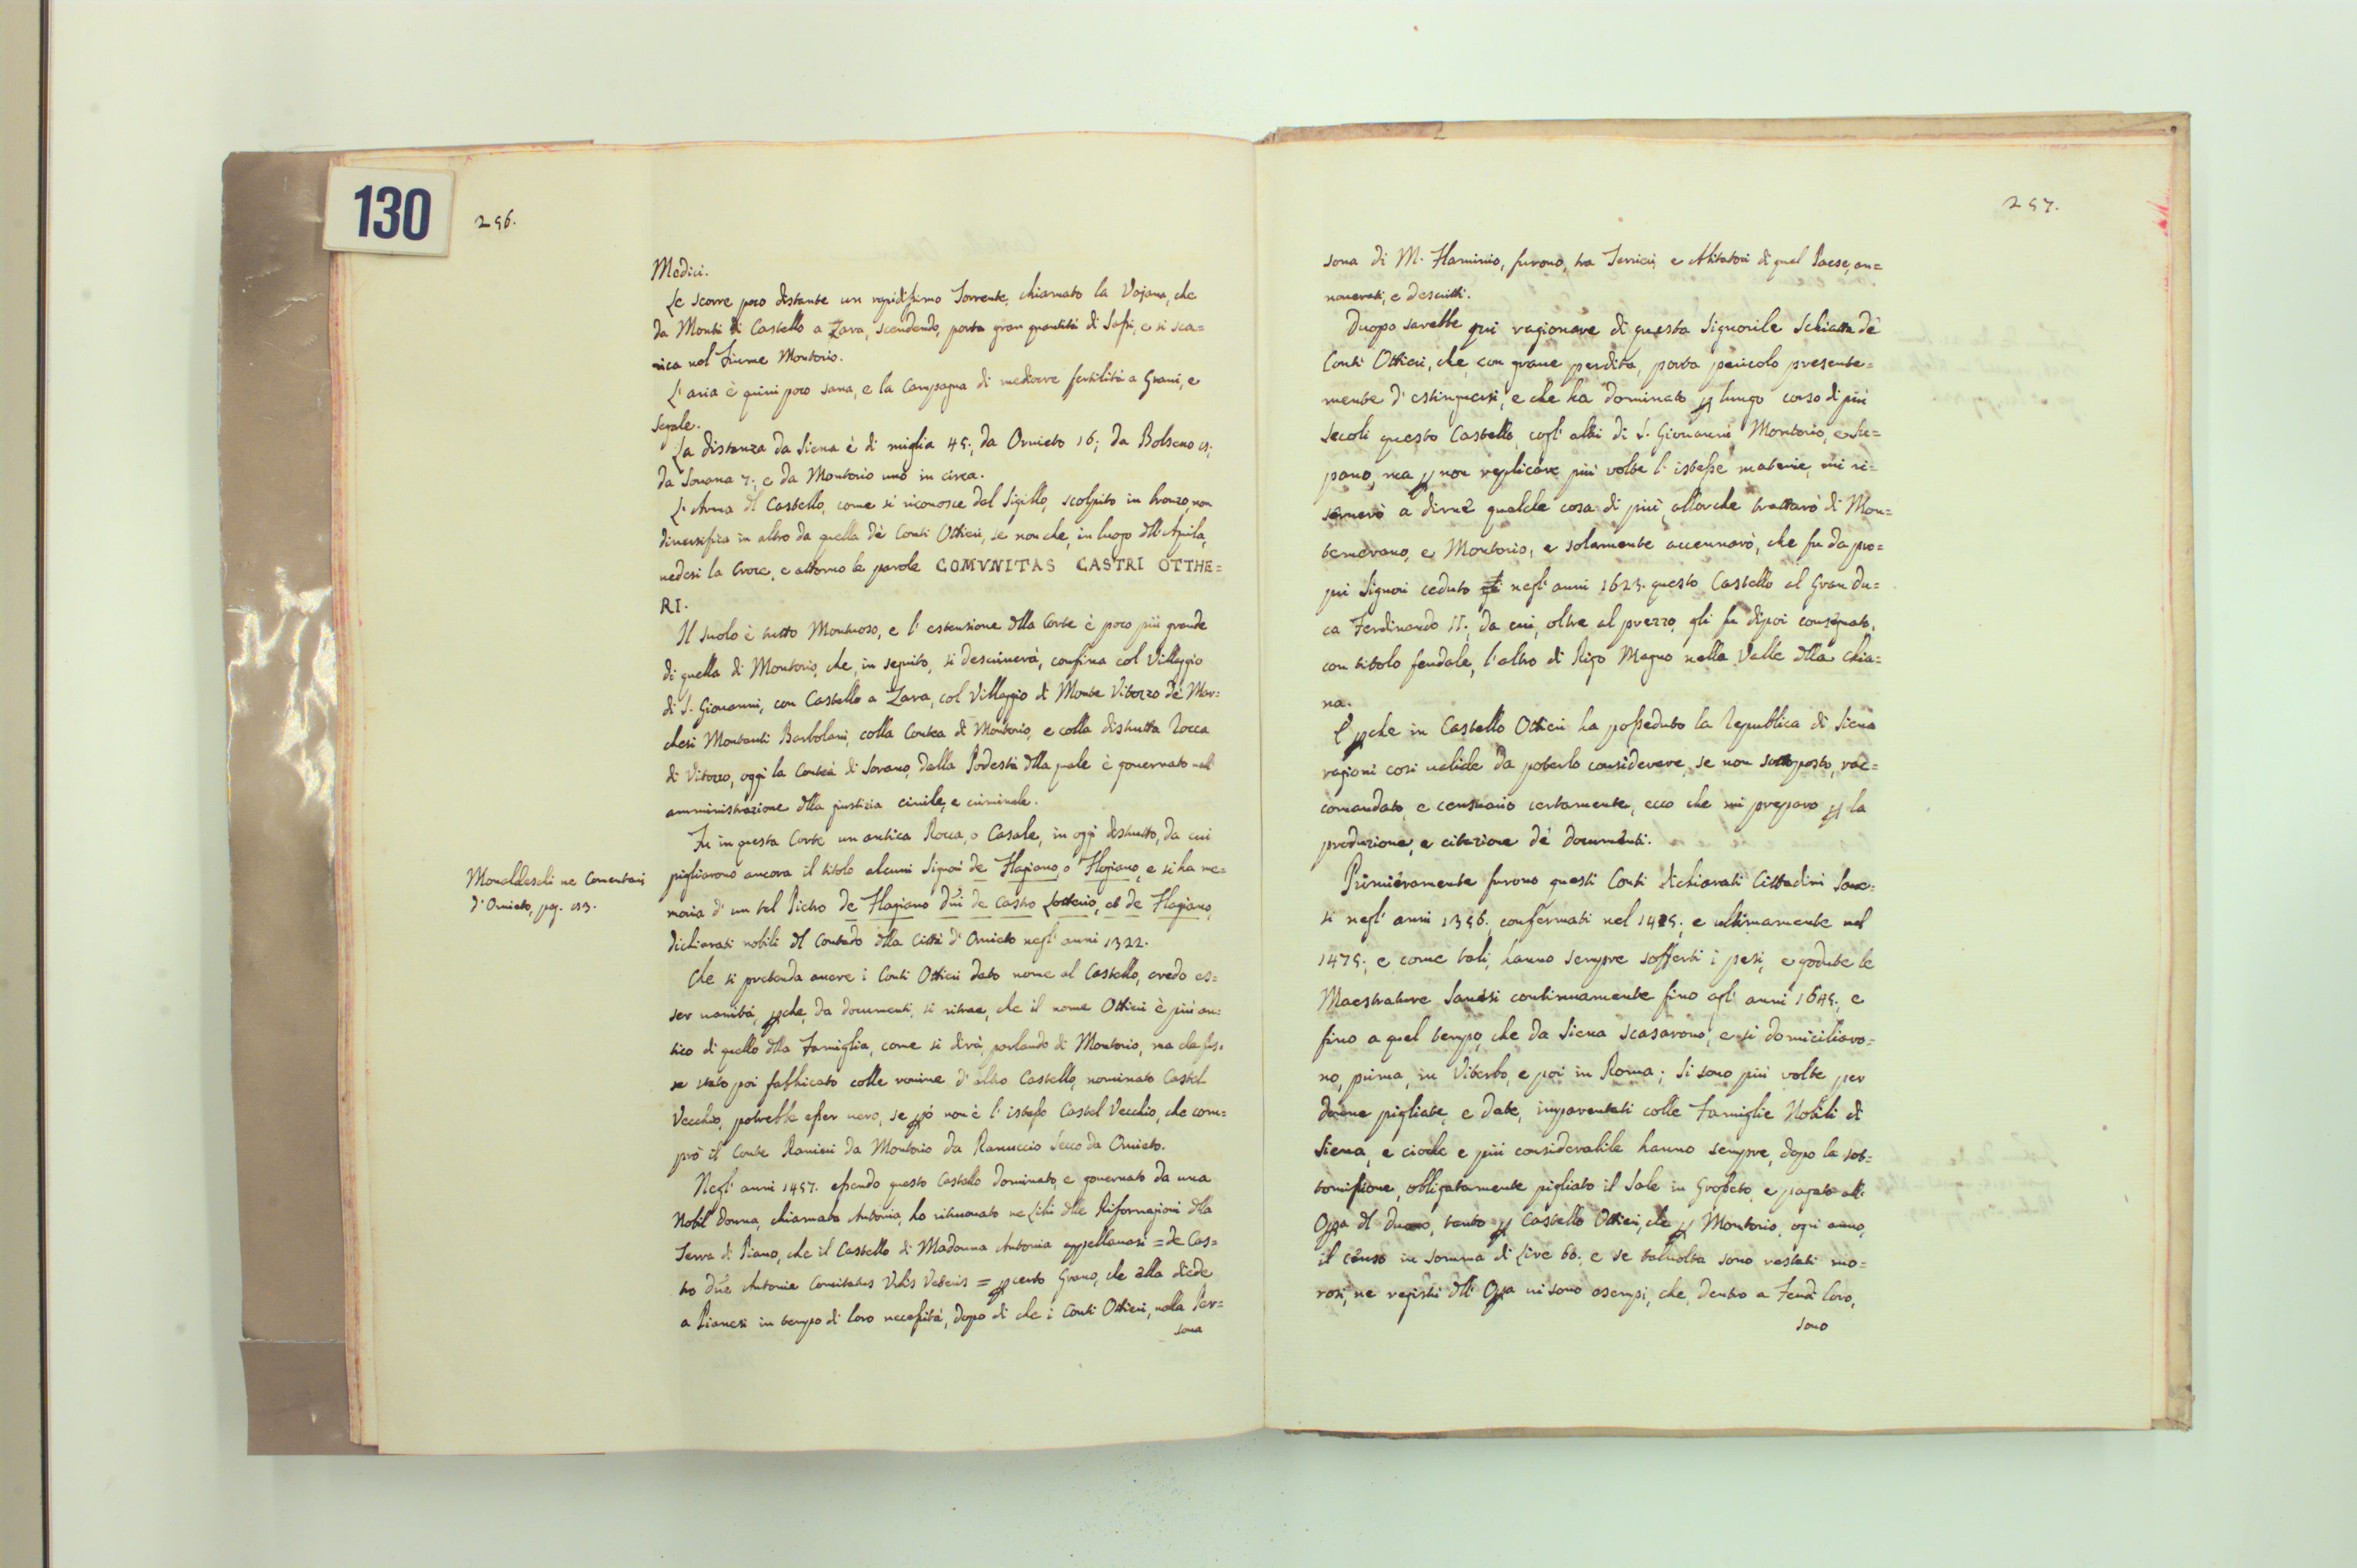 130
256.
Medici.
Le scorre poco distante un rapidissimo Torrente, chiamato la Vajana, che
da Monti di Castello a Zara, scendendo, porta gran quantità di Sassi, e si sca=
rica nel Fiume Montorio.
L'aria è quivi poco sana, e la Campagna di mediocre fertilità a Grani, e
Segale.
La distanza da Siena è di miglia 45; da Orvieto 16; da Bolseno
da Sovana 7; e da Montorio uno in circa.
L'Arma dl Castello, come si riconosce dal Sigillo, scolpito in bronzo, non
diversifica in altro da quella de' Conti Ottieri, se non che, in luogo dll'Aquila,
vedesi la Croce, e attorno le parole COMVNITAS CASTRI OTTHE=
RI.
Il suolo è tutto Montuoso, e l'estensione dlla Corte è poco più grande
di quella di Montorio, che, in seguito, si descriverà, confina col Villaggio
di S. Giovanni, con Castello a Zara, col Villaggio di Monte Vitozzo de' Mar=
chesi Montauti Barbolani, colla Contea di Montorio, e colla distrutta Rocca
di Vitozzo, oggi la Contea di Sorano, dalla Podestà dlla quale è governato nel
amministrazione dlla giustizia civile, e criminale.
Fu in questa Corte un antica Rocca, o Casale, in oggi distrutto, da cui
pigliarono ancora il titolo alcuni Signori de Flagiano, o Flogiano, e si ha me=
Monaldeschi ne Comentarj
moria d'un tal Pietro de Flagiano dñi de Castro Lotterio, et de Flagiano,
d'Orvieto, pag.
dichiarati nobili dl Contado dlla Città d'Orvieto negl'anni 1322.
Che si pretenda avere i Conti Ottieri dato nome al Castello, credo es=
ser vanità, pche, da documenti, si ritrae, che il nome Ottieri è più an=
tico di quello dlla Famiglia, come si dirà, parlando di Montorio, ma che fos=
se stato poi fabbricato colle rovine d'altro Castello, nominato Castel
Vecchio, potrebbe esser vero, se pò non è l'istesso Castel Vecchio, che com=
prò il Conte Ranieri da Montorio da Ranuccio Secco da Orvieto.
Negl'anni 1457. essendo questo Castello dominato, e governato da una
Nobil Donna, chiamata Antonia, ho ritrovato ne Libri dlle Riformagioni dlla
Terra di Piano, che il Castello di Madonna Antonia appellavasi = de Cas=
tro Dñe Antonie Comitatus = p certo Grano, che ella diede
a Pianesi in tempo di loro necessità, dopo di che i Conti Ottieri, nella Per=
sona
257.
sona di M. Flaminio, furono, tra Terrieri, e Abitatori di quel Paese, an=
noverati, e descritti.
Duopo sarebbe qui ragionare di questa Signorile Schiatta de'
Conti Ottieri, che, con grave perdita, porta pericolo presente=
mente d'estinguersi, e che ha dominato p lungo corso di più
secoli questo Castello, cogl'altri di S. Giovanni, Montorio, e Su=
pano, ma p non replicare più volte l'istesse materie, mi ri=
serverò a dirne qualche cosa di più, allorche trattarò di Mon=
temerano, e Montorio, e solamente accennarò, che fu da pro=
prj Signori ceduto negl'anni 1623. questo Castello al Gran Du=
ca Ferdinando II., da cui, oltre al prezzo, gli fu dipoi consegnato,
con titolo feudale, l'altro di Rigo Magno nella Valle dlla Chia=
na.
E pche in Castello Ottieri ha posseduto la Republica di Siena
ragioni così valide da poterlo considerare, se non sottoposto, rac=
comandato, e censuario certamente, ecco che mi preparo p la
produzione, e citazione de' documenti.
Primieramente furono questi Conti dichiarati Cittadini Sane=
si negl'anni 1356. confermati nel 1425; e ultimamente nel
1475; e come tali, hanno sempre sofferti i pesi, e godute le
Maestrature Sanesi continuamente fino agl'anni 1645; e
fino a quel tempo, che da Siena scasarono, e si domiciliaro=
no, prima, in Viterbo, e poi in Roma; Si sono più volte per
donne pigliate, e date, imparentati colle Famiglie Nobili di
Siena, e ciò che e più considerabile hanno sempre, dopo la sot=
tomissione, obbligatamente pigliato il Sale in Grosseto, e pagato all'
Opa dl duomo, tanto p Castello Ottieri, che p Montorio, ogni anno,
il censo in somma di Lire 66. e se talvolta sono restati mo=
rosi, ne registri dll'Opa vi sono esempi, che, dentro a Feudi loro,
sono